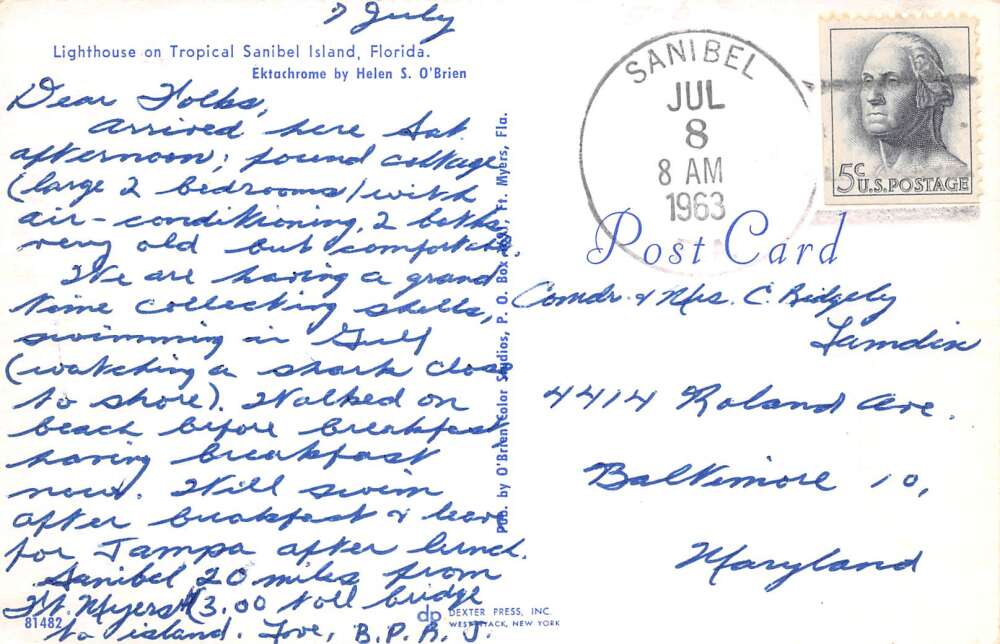 7 July
Lighthouse on Tropical Sanibel Island, Florida.
Ektachrome by Helen S. O'Brien
Dear Folks,
Arrived here Sat.
afternoon; found cottage
(large 2 bedrooms) with
air-conditioning, 2 baths,
very old but comfortable.
We are having a grand
time collecting shells,
swimming in Gulf
(watching a shark close
to shore). Walked on
beach before breakfast
having breakfast
now. Will swim
after breakfast & leave
for Tampa after lunch.
Sanibel 20 miles from
Ft. Myers $3.00 toll bridge
to island. Love, B.P.R.J.
81482
dp
DEXTER PRESS, INC.
WEST NYACK, NEW YORK
Pub. by O'Brien Color Studios, P. O. Box Ft. Myers, Fla.
SANIBEL
JUL
8
8 AM
1963
5c
U.S. POSTAGE
Post Card
Comdr. & Mrs. C. Ridgely
Lamdin
4414 Roland Ave.
Baltimore 10,
Maryland